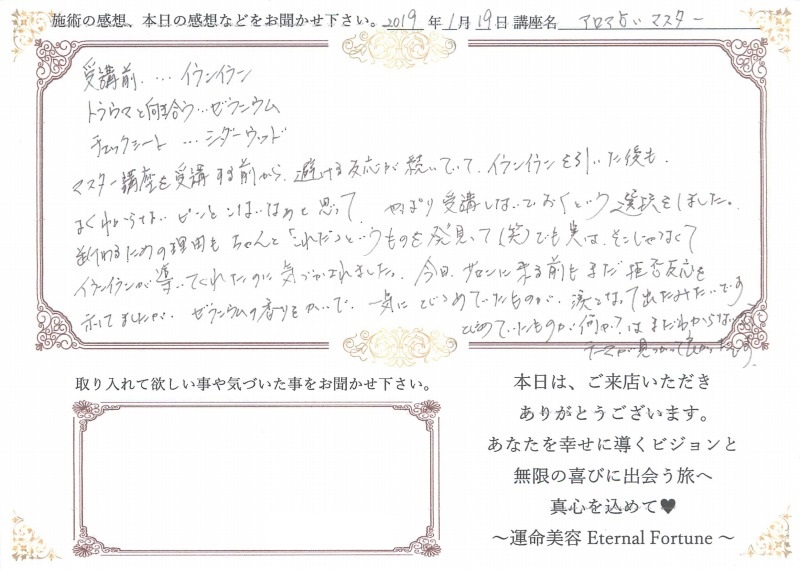 施術の感想、本日の感想などをお聞かせ下さい。2019年1月19日 講座名 アロマ占い マスター
受講前 … イランイラン
トラウマと向き合う … ゼラニウム
チェックシート … シダーウッド
マスター講座を受講する前から、避ける反応が続いていて、イランイランを引いた後も、
よくわからない ピンとこないなぁと思って やっぱり受講しないでおくという選択をしました。
断わるための理由も ちゃんと「これだっ」というものを発見して(笑)でも実は、そこじゃなくて
イランイランが導いてくれたのに気づかされました。今日、サロンに来る前もまだ拒否反応を
示してましたが、ゼラニウムの香りをかいで、一気にとじこめていたものが、涙となって出たみたいです
とじこめていたものが何か?はまだわからない
テーマが見つかって良かったです。
取り入れて欲しい事や気づいた事をお聞かせ下さい。
本日は、ご来店いただき
ありがとうございます。
あなたを幸せに導くビジョンと
無限の喜びに出会う旅へ
真心を込めて♥
～運命美容 Eternal Fortune ～